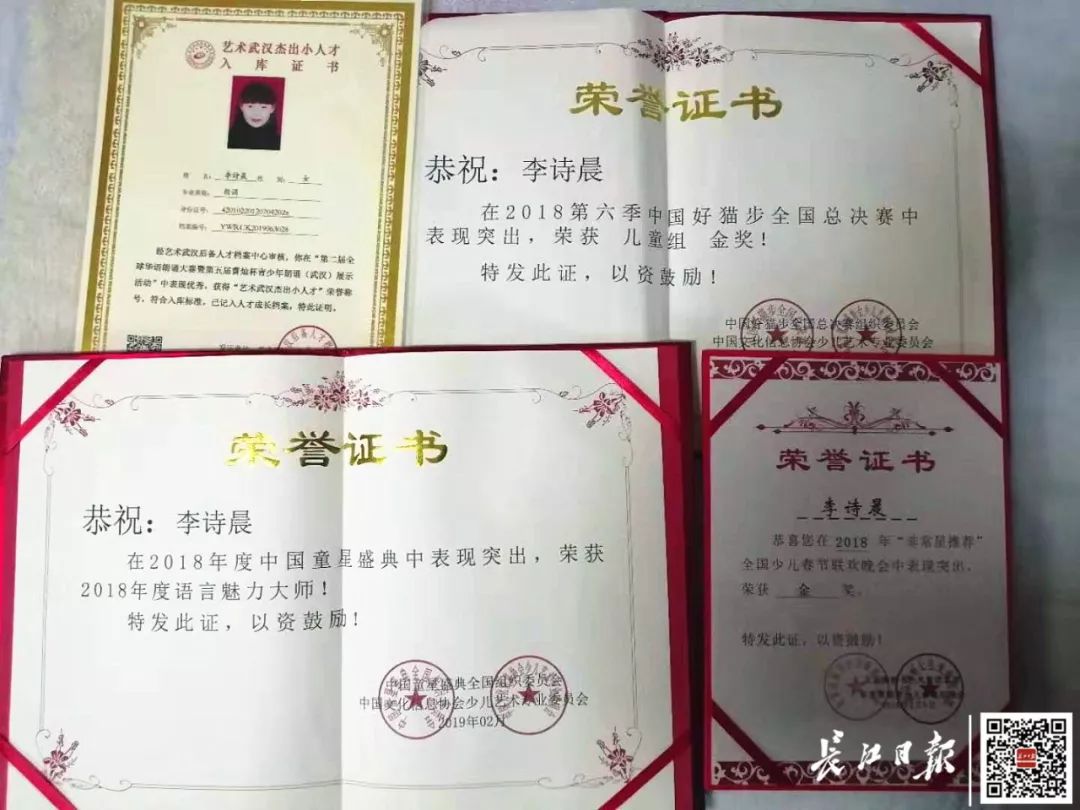 艺术武汉杰出小人才
入库证书
姓名: 李诗晨 性别: 女
专业类别: 朗诵
身份证号:
档案编号:
经艺术武汉后备人才档案中心审核，你在“第二届全
球华语朗诵大赛暨第五届曹灿杯青少年朗诵（武汉）展示
活动”中表现优秀，获得“艺术武汉杰出小人才”荣誉称
号，符合入库标准，已记入人才成长档案，特此证明。
荣誉证书
恭祝：李诗晨
在2018第六季中国好猫步全国总决赛中
表现突出，荣获 儿童组 金奖！
特发此证，以资鼓励！
中国好猫步全国总决赛组织委员会
中国文化信息协会少儿艺术专业委员会
荣誉证书
恭祝：李诗晨
在2018年度中国童星盛典中表现突出，荣获
2018年度语言魅力大师！
特发此证，以资鼓励！
中国童星盛典全国组织委员会
中国文化信息协会少儿艺术专业委员会
2019年02月
荣誉证书
李诗晨
恭喜您在 2018 年“非常星推荐”
全国少儿春节联欢晚会中表现突出，
荣获 金 奖。
特发此证，以资鼓励！
长江日报